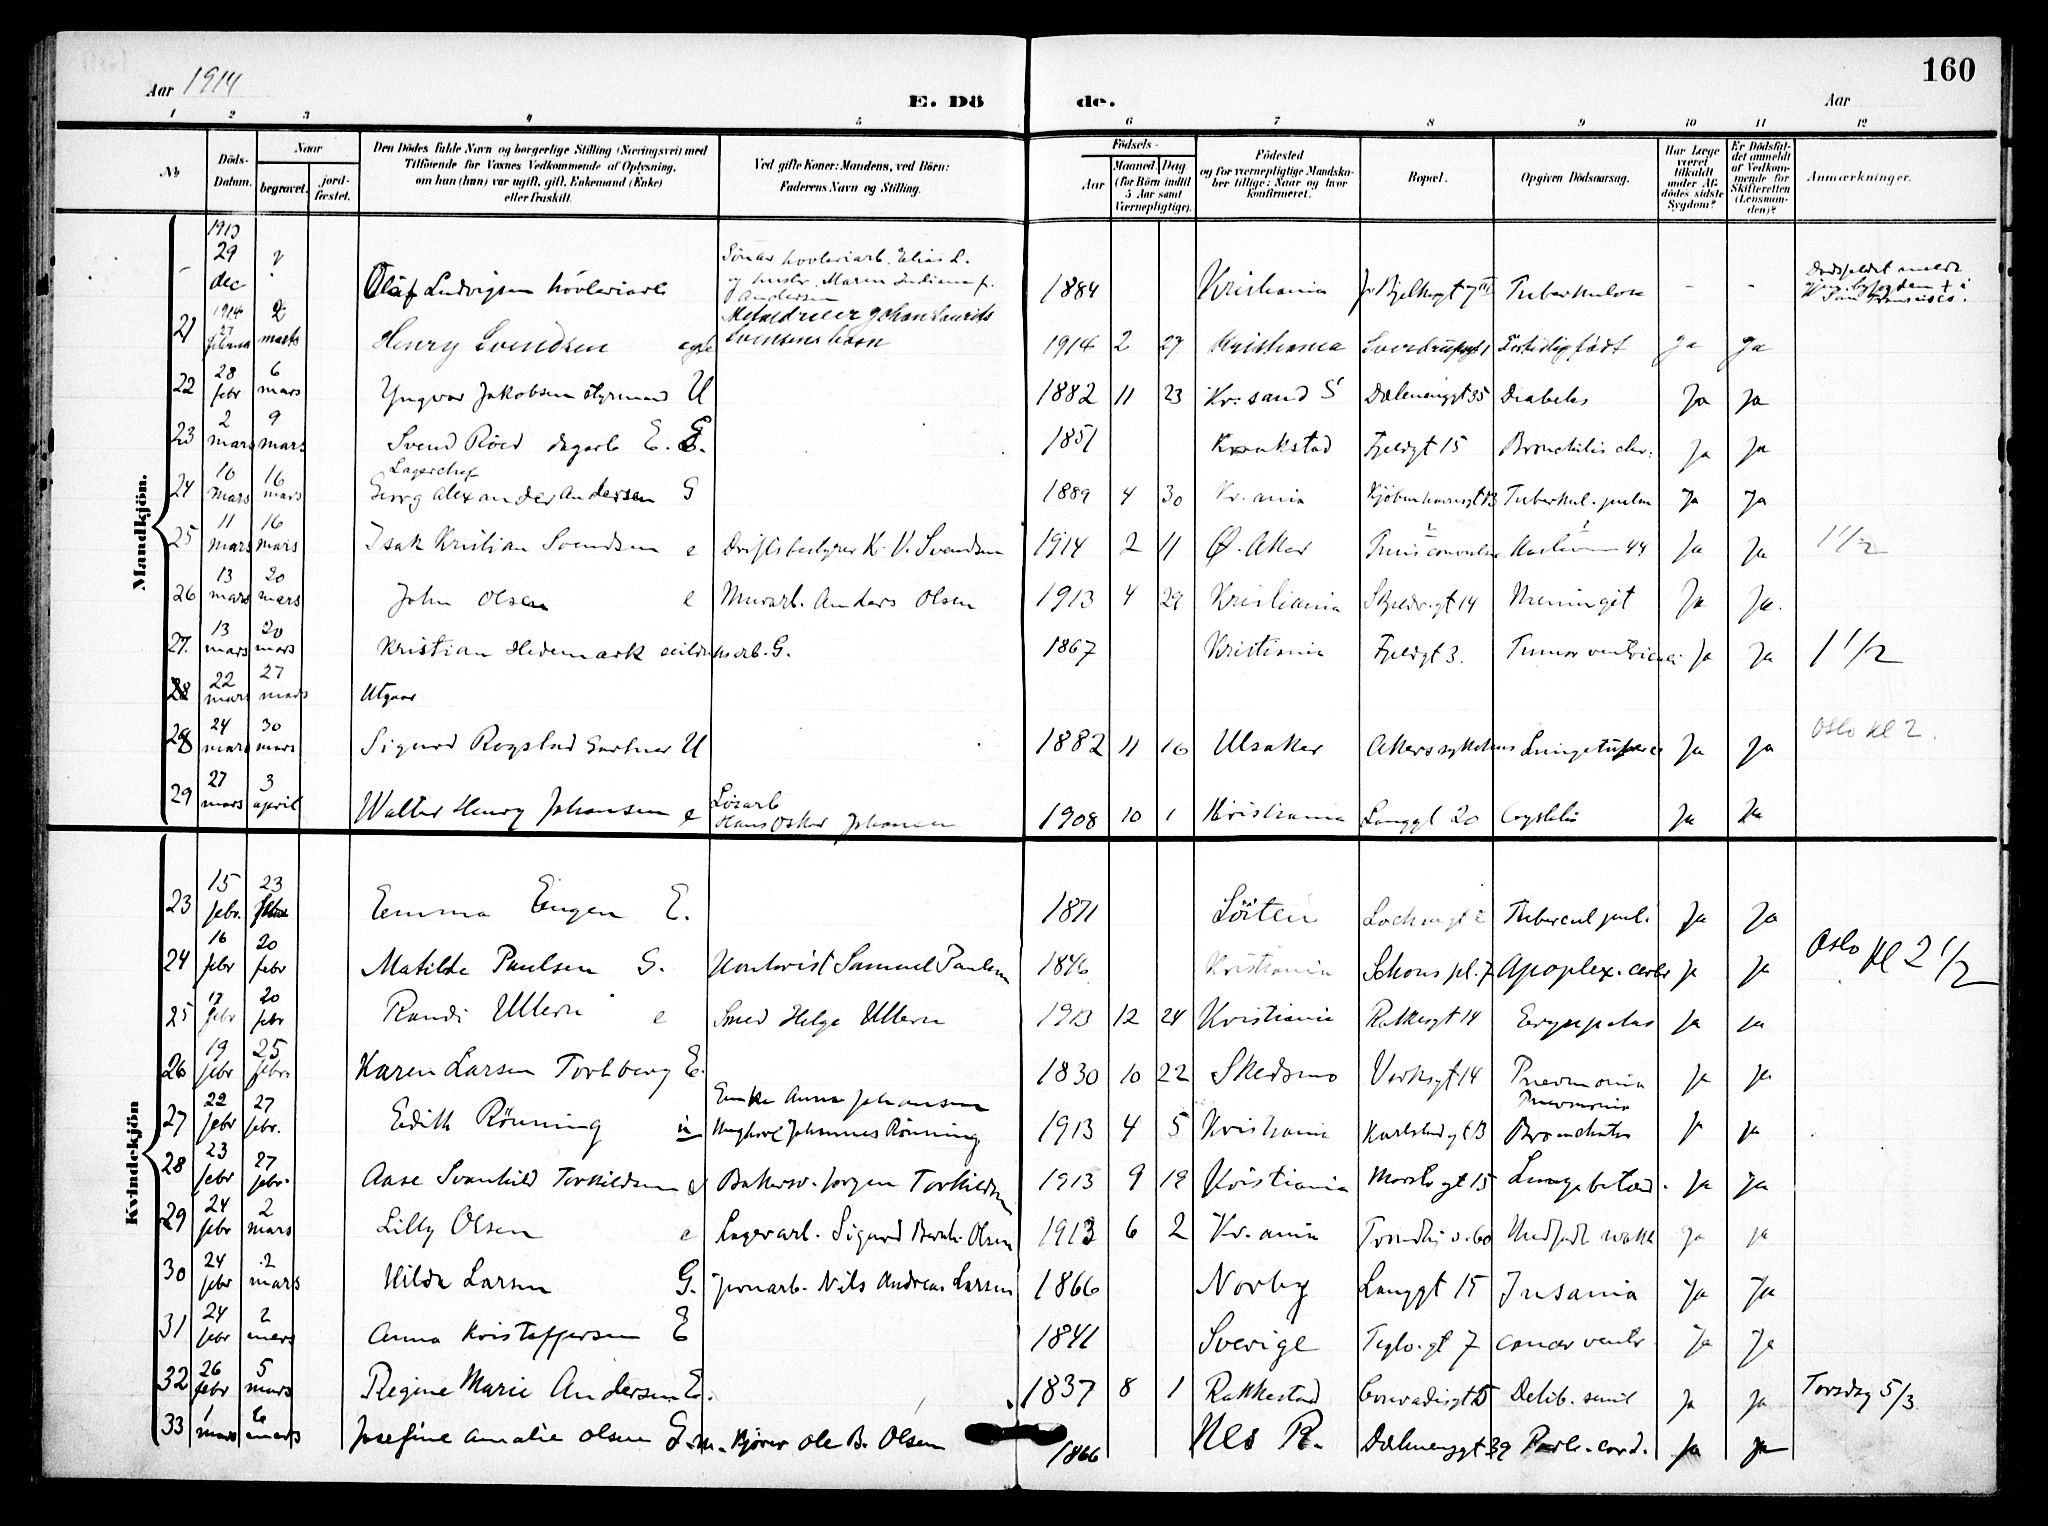 160
Aar 1914
E. Dö
de.
Aar
1 2 3 4 5 6 7 8 9 10 11 12
No
Döds-Datum.
Naar
begravet.
jord-fæstet.
Den Dödes fulde Navn og borgerlige Stilling (Næringsvei) med
Tilföiende for Voxnes Vedkommende af Oplysning,
om han (hun) var ugift, gift, Enkemand (Enke)
eller fraskilt.
Ved gifte Koner: Mandens, ved Börn:
Faderens Navn og Stilling.
Födsels-
Aar
Maaned. Dag.
(for Börn indtil
5 Aar samt
Værnepligtige).
Födested
og for værnepligtige Mandska-
ber tillige: Naar og hvor
konfirmeret.
Bopæl.
Opgiven Dödsaarsag.
Har Læge
været
tilkaldt
under Af-
dödes sidste
Sygdom?
Er Dödsfal-
det anmeldt
af Vedkom-
mende for
Skifteretten
(Lensman-
den)?
Anmærkninger.
Mandkjön.
1913 29 dec Olaf Ludvigsen 1884 Kristiania Tuberkulose - -
21 1914 27 2 marts Henry Svendsen 1914 2 27 Kristiania Fortidlig født Ja Ja
22 28 febr 6 mars Yngvar Jakobsen styrmand U 1882 11 23 Kr.sand S Dælenenggt 35 Diabetes Ja Ja
23 2 mars 9 mars Svend Röed dagarb E. 1851 Kraakstad Fjeldgt 15 Bronchitis chr. Ja Ja
24 10 mars 16 mars Lagerchef
Georg Alexander Andersen G 1889 4 30 Kr.ania Kjöbenhavnsgt 13 Tuberkul. pulm Ja Ja
25 11 mars 16 mars Isak Kristian Svendsen e Driftsbestyrer K. V. Svendsen 1914 2 11 Ø. Aker Ja Ja 1 1/2
26 13 mars 20 mars John Olsen e Murarb. Anders Olsen 1913 4 29 Kristiania Meningit Ja Ja.
27. 13 mars 20 mars Kristian Hedemark G. 1867 Kristiania Fjeldgt 3. Tumor ventriculi Ja Ja 1 1/2
28 22 mars 27 mars Utgaar
28 24 mars 30 mars Sigurd Rogstad Gartner U 1882 11 16 Ulsaker Akers sykehus Ja Ja Oslo kl 2.
29 27 mars 3 april Walter Henry Johansen e Løsarb
Hans Oskar Johansen 1908 10 1 Kristiania Langgt 20 Ja Ja
Kvindekjön
23 15 febr. 23 Emma Engen E. 1871 Löiten Tubercul pul. Ja Ja
24 16 febr 20 febr Matilde Paulsen G. Kontorist Samuel Paulsen 1846 Kristiania Schous pl. 7 Apoplex. cerbr Ja Ja Oslo kl 2 1/2
25 17 febr 20 febr Randi Ullern e Smed Helge Ullern 1913 12 24 Kristiania Rathkesgt 14 Erysipelas Ja Ja
26 19 febr 25 febr. Karen Larsen Torhberg E. 1830 10 22 Skedsmo Verksgt 14 Pneumonia Ja Ja
27 22 febr 27 febr. Edith Rönning u Enke Anna Johansen
Ungkarl Johannes Rönning 1913 4 5 Kristiania Karlstadgt 13 Pneumonia
Bronchitis Ja Ja
28 23 febr 27 febr. Aase Svanhild Torkildsen e Bakersv. Jørgen Torkildsen 1913 9 19 Kristiania Lungebetæd. Ja Ja
29 24 febr 2 mars Lilly Olsen e Lagerarb. Sigurd Bernh. Olsen 1913 6 2 Kr.ania Trondhj v. 60 Ja Ja
30 24 febr 2 mars Hilda Larsen G. Jernarb. Nils Andreas Larsen 1866 Norby Langgt 15 Insania Ja Ja
31 24 febr 2 mars Anna Kristoffersen E 1841 Sverige Teglv.gt 7 cancer ventr. Ja Ja
32 26 febr 5 mars Regine Marie Andersen E. 1837 8 1 Rakkestad Conradisgt 5 Debil. senil Ja Ja Torsdag 5/3
33 1 mars 6 mars Josefine Amalie Olsen G. m. Kjører Ole B. Olsen 1866 Nes R. Dælenenggt 39 Paral. cord. Ja Ja